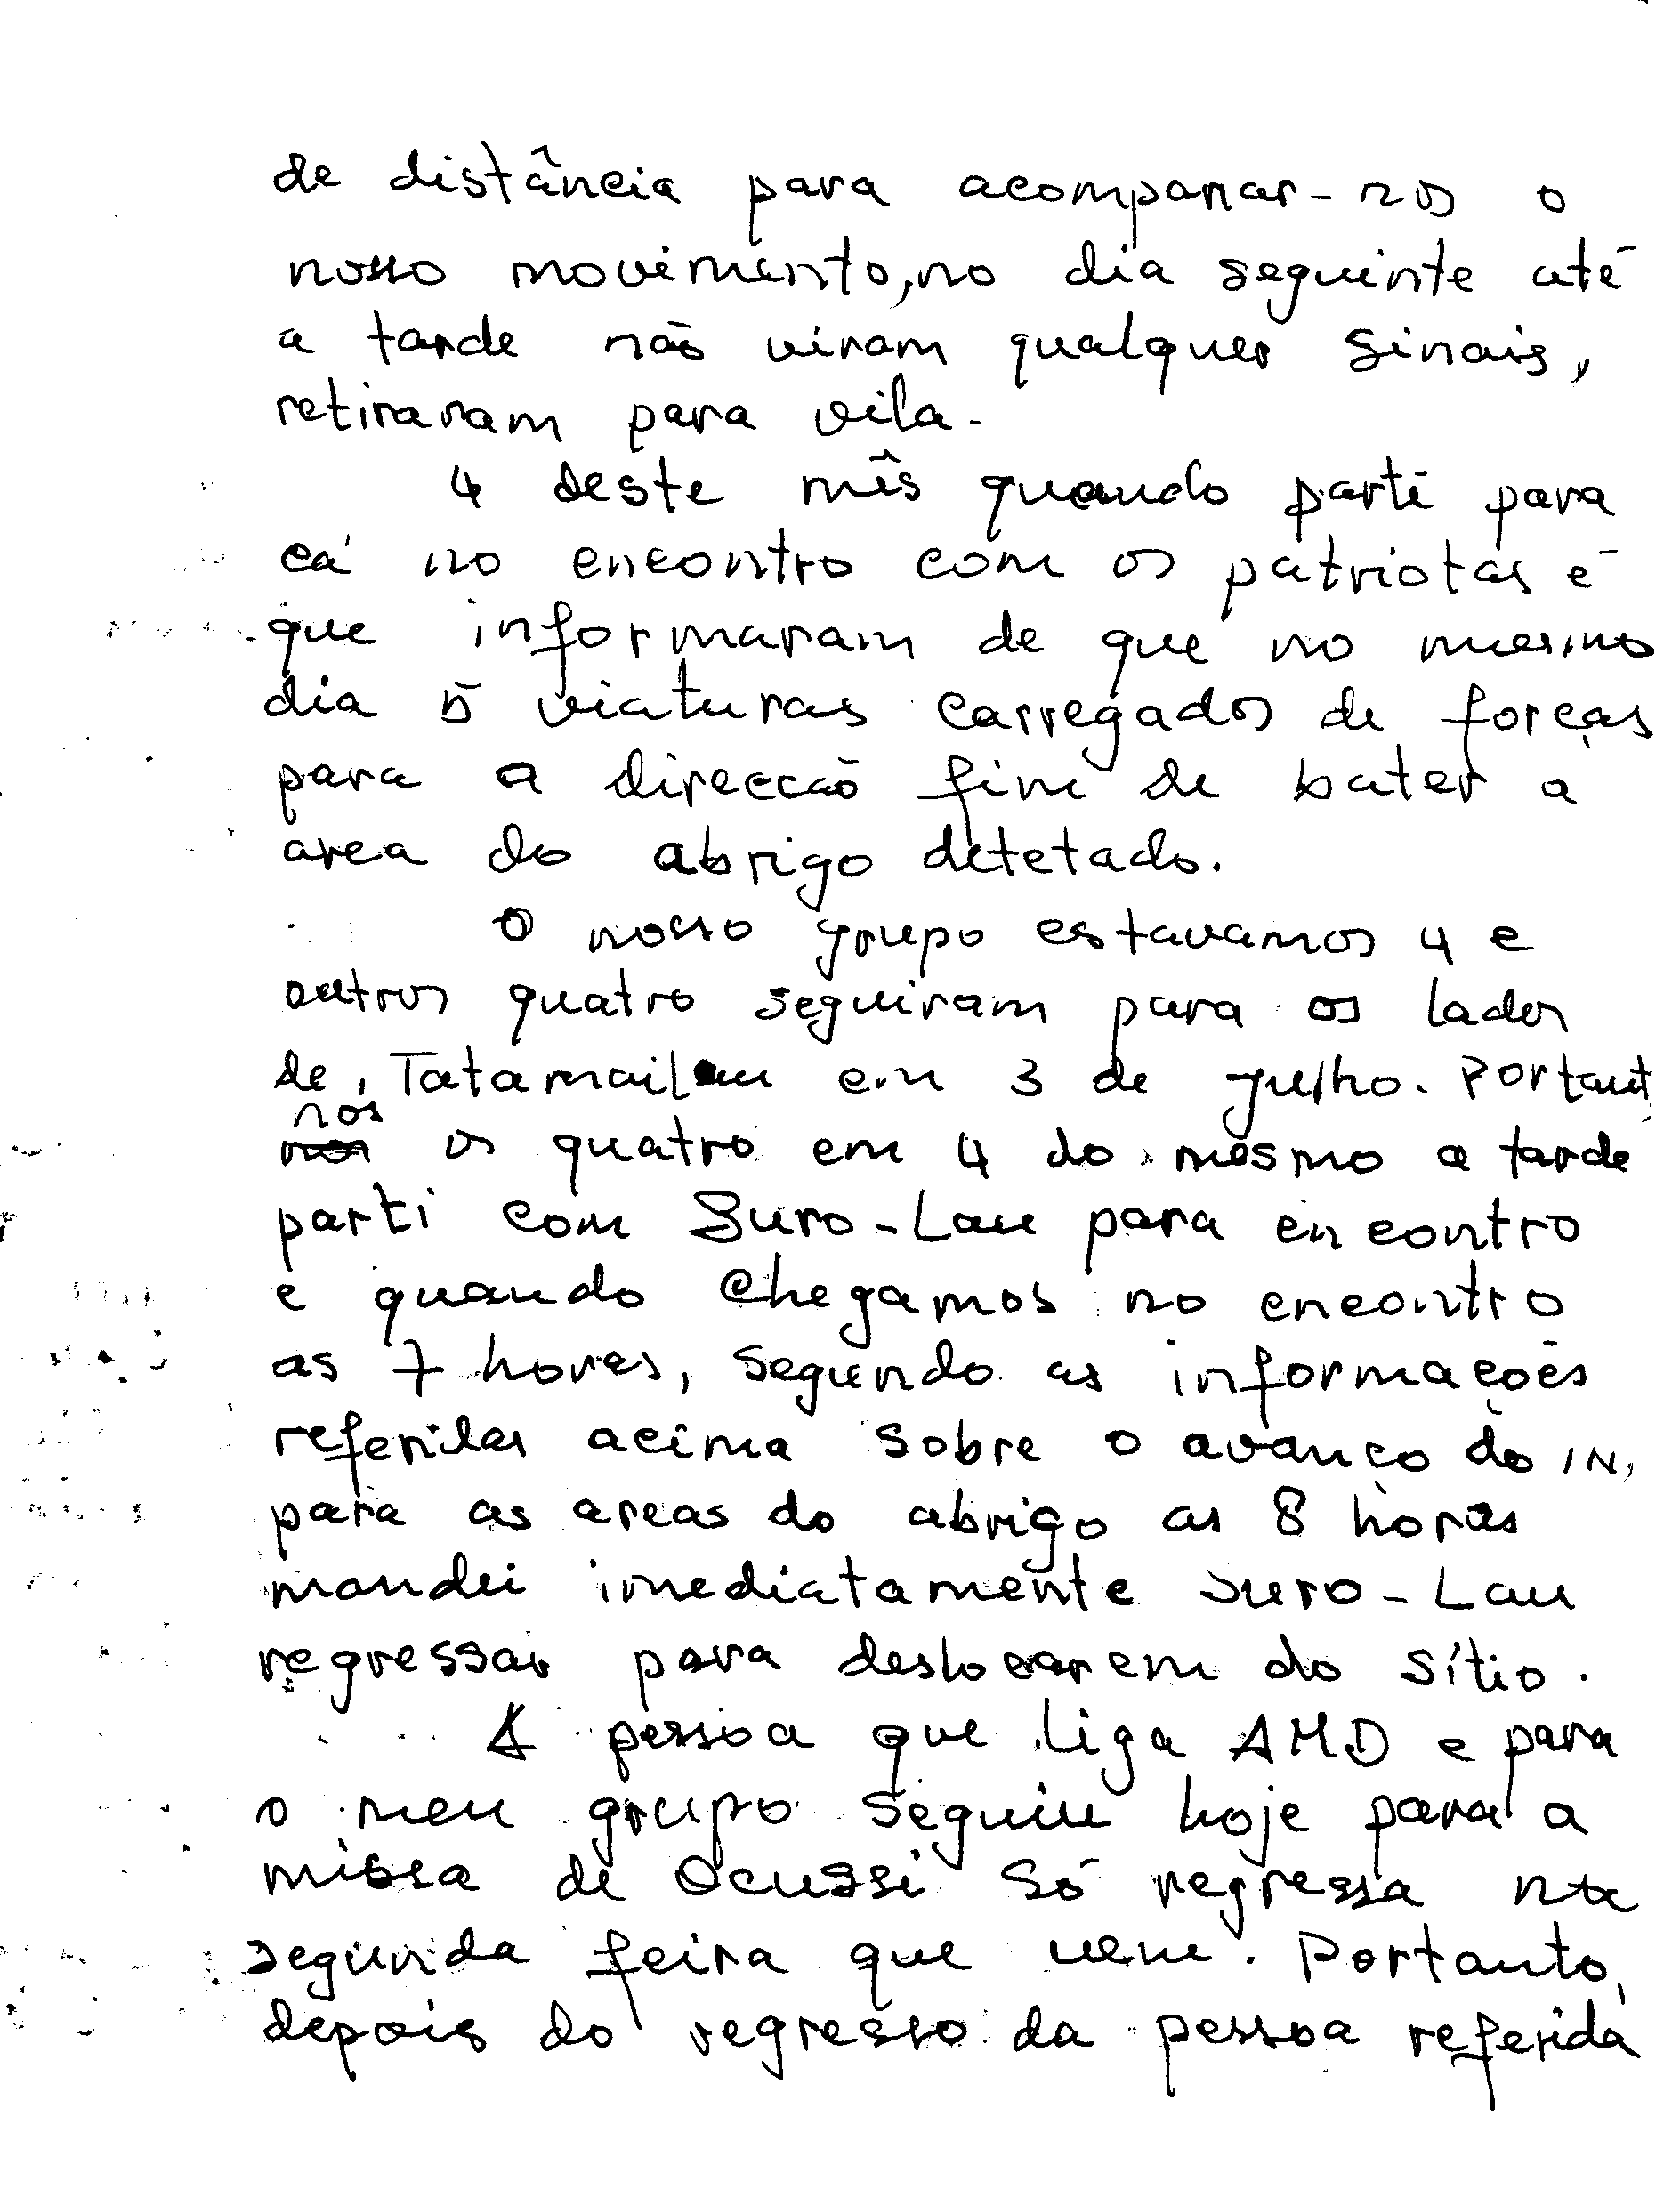 de distância para acompanar-nos o
nosso movimento, no dia seguinte até
a tarde não viram qualquer sinais,
retiraram para vila.
4 deste mês quando parti para
cá no encontro com os patriotas é
que informaram de que no mesmo
dia 5 viaturas carregados de forças
para a direccão fim de bater a
area do abrigo detetado.
O nosso grupo estavamos 4 e
outros quatro seguiram para os lados
de Tatamailau em 3 de Julho. Portant
nós
nos os quatro em 4 do mesmo a tarde
parti com Suro-Lau para encontro
e quando chegamos no encontro
as 7 horas, segundo as informações
referidas acima sobre o avanço do IN,
para as areas do abrigo as 8 horas
mandei imediatamente Suro-Lau
regressar para deslocarem do sítio.
A pessoa que liga AMD e para
o meu grupo seguiu hoje para a
missa de Ocussi só regressa na
segunda feira que vem. Portanto,
depois do regresso da pessoa referida